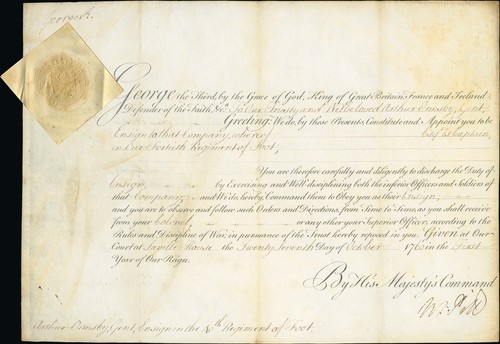 George R.
George the Third, by the Grace of God, King of Great Britain, France and Ireland
Defender of the Faith, &c. To Our Trusty and Wellbeloved Arthur Ormsby, Gent,
Greeting: We do, by these Presents, Constitute and Appoint you to be
Ensign to that Company, whereof Esq. is Captain,
in Our Regiment of Foot,
You are therefore carefully and diligently to discharge the Duty of
Ensign, by Exercising and Well disciplining both the inferior Officers and Soldiers of
that Company; and We do hereby Command them to Obey you as their Ensign;
and you are to observe and follow such Orders and Directions, from Time to Time, as you shall receive
from your Colonel, or any other your Superior Officer, according to the
Rules and Discipline of War, in pursuance of the Trust hereby reposed in you. Given at Our
Court at House the Twenty Seventh Day of October 1760 in the First
Year of Our Reign.
By His Majesty's Command
W. Pitt
Arthur Ormsby, Gent, Ensign in the Regiment of Foot.